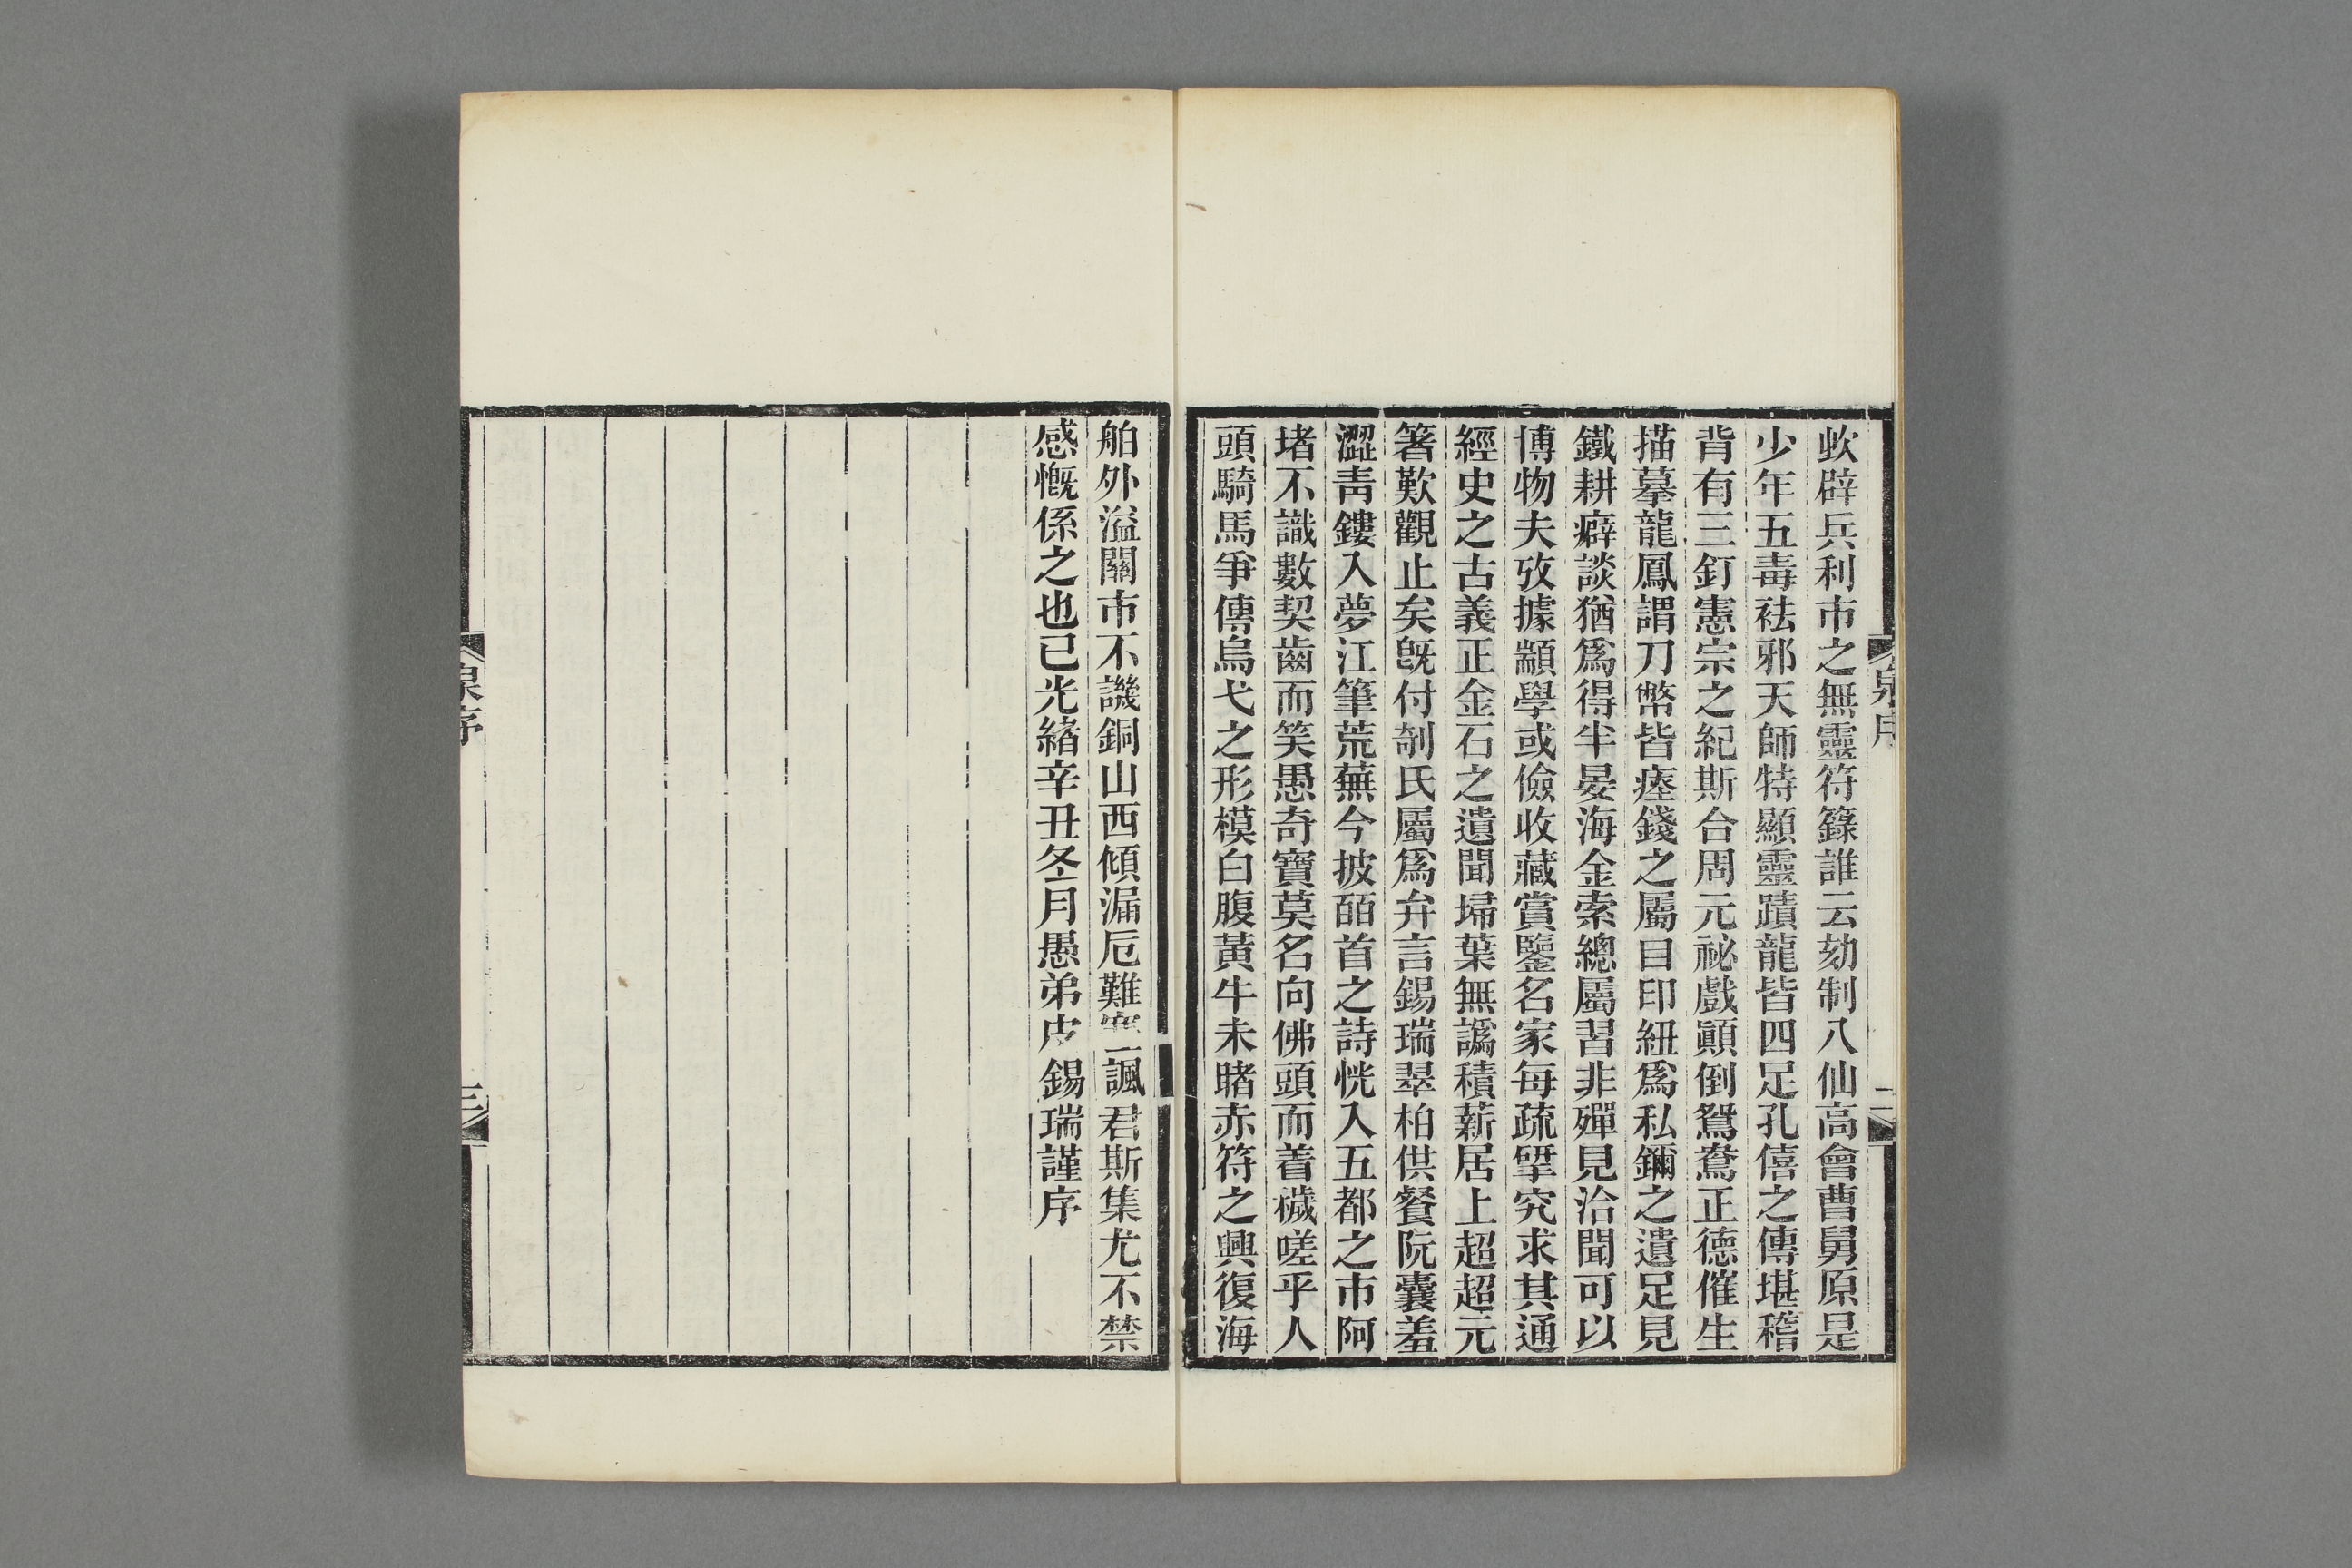 蚥辟兵利市之無靈符籙誰云劾制八仙高會曹舅原是
少年五毒祛邪天師特顯靈蹟龍皆四足孔僖之傳堪稽
背有三釘憲宗之紀斯合周元祕戲顚倒鴛鴦正德催生
描摹龍鳳謂刀幣皆瘞錢之屬目印紐爲私鉨之遺足見
鐵耕癖談猶爲得半晏海金索總屬習非殫見洽聞可以
博物夫攷據顓學或儉收藏賞鑒名家每疏揅究求其通
經史之古義正金石之遺聞埽葉無譌積薪居上超超元
箸歎觀止矣旣付剞氏屬爲弁言錫瑞翠柏供餐阮囊羞
澀靑鏤入夢江筆荒蕪今披皕首之詩恍入五都之市阿
堵不識數契齒而笑愚奇寶莫名向佛頭而着穢嗟乎人
頭騎馬爭傳烏弋之形模白腹黃牛未睹赤符之興復海
舶外溢關市不譏銅山西傾漏卮難塞一諷君斯集尤不禁
感慨係之也已光緒辛丑冬月愚弟皮錫瑞謹序
泉序
二
泉序
三